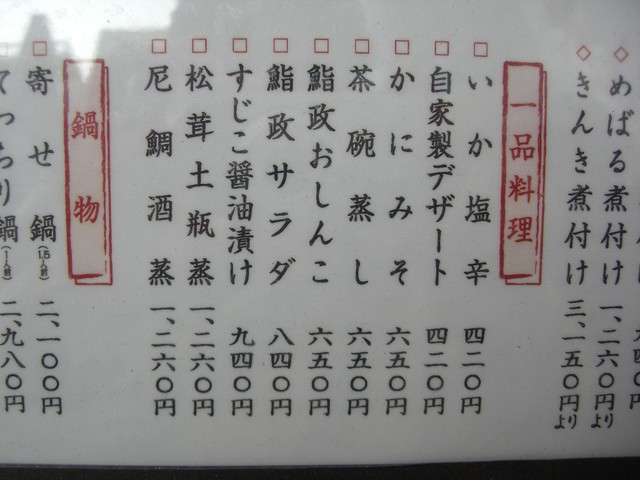 めばる煮付け 一、二六〇円より
きんき煮付け 三、一五〇円より
一品料理
いか塩辛 四二〇円
自家製デザート 四二〇円
かにみそ 六五〇円
茶碗蒸し 六五〇円
鮨政おしんこ 六五〇円
鮨政サラダ 八四〇円
すじこ醤油漬け 九四〇円
松茸土瓶蒸 一、二六〇円
尼鯛酒蒸 一、二六〇円
鍋物
寄せ鍋(1.5人前) 二、一〇〇円
てっちり鍋(一人前) 二、九八〇円